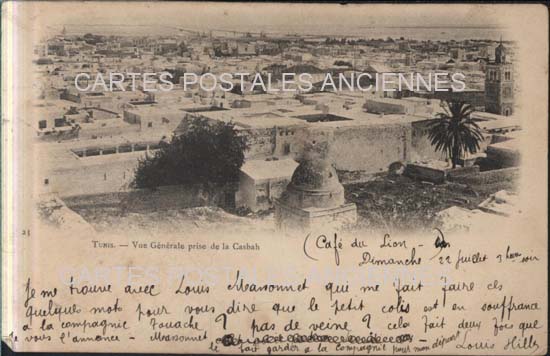 CARTES POSTALES ANCIENNES
21
Tunis. — Vue Générale prise de la Casbah
(Café du Lion -
Dimanche 22 juillet 3 heures soir
Je me trouve avec Louis Massonnet qui me fait faire ces
quelques mots pour vous dire que le petit colis est en souffrance
à la compagnie Touache ? pas de veine ? cela fait deux fois que
je vous l'annonce - Massonnet
le fait garder à la compagnie pour mon départ Louis